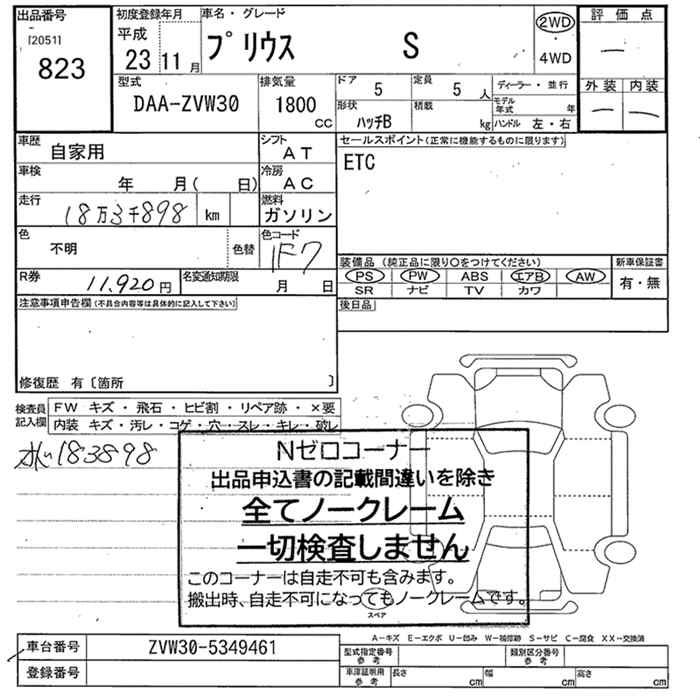 出品番号 初度登録年月 車名・グレード 評価点
[2051] 平成 2WD
823 23 11月 プリウス S 4WD —
型式 排気量 ドア 定員 ディーラー・並行 外装 内装
DAA-ZVW30 1800 CC 5 5人 モデル年式 年 — —
形状 積載
ハッチB kg ハンドル 左・右
車歴 自家用 シフト AT セールスポイント(正常に機能するものに限ります)
車検 年 月( 日) 冷房 AC ETC
走行 18万3千898 km 燃料 ガソリン
色 不明 色替 色コード 1F7 装備品(純正品に限り〇をつけてください) 新車保証書
PS PW ABS エアB AW 有・無
R券 11,920円 名変通知期限 月 日 SR ナビ TV カワ
注意事項申告欄(不具合内容等は具体的に記入して下さい) 後日品
修復歴 有〔箇所 〕
検査員記入欄 FW キズ・飛石・ヒビ割・リペア跡・×要
内装 キズ・汚レ・コゲ・穴・スレ・キレ・破レ
183898
Nゼロコーナー
出品申込書の記載間違いを除き
全てノークレーム
一切検査しません
このコーナーは自走不可も含みます。
搬出時、自走不可になってもノークレームです。
スペア
A-キズ E-エクボ U-凹み W-補修跡 S-サビ C-腐食 XX-交換済
車台番号 ZVW30-5349461 型式指定番号 参考 類別区分番号 参考
登録番号 車庫証明用 参考 長さ cm 幅 cm 高さ cm